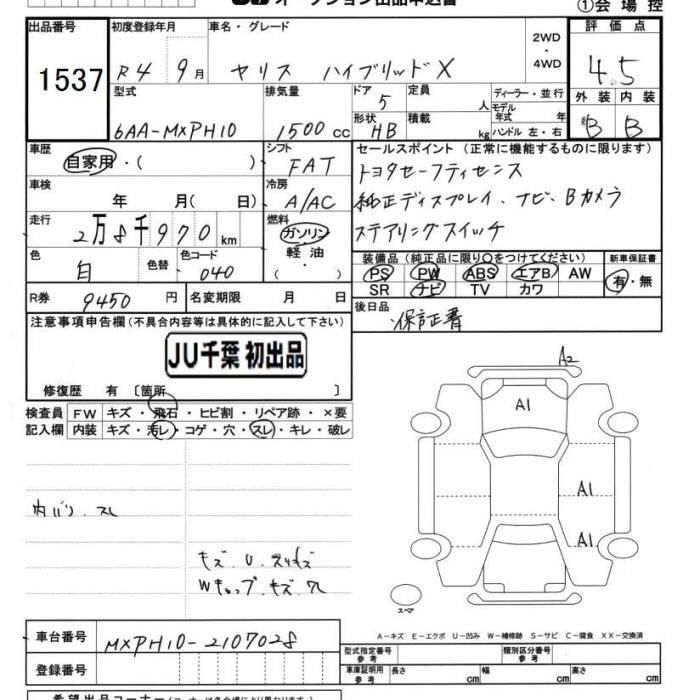 ①会場控
出品番号
1537
初度登録年月
R4 9月
車名・グレード
ヤリス ハイブリッドX
2WD
・
4WD
評価点
4.5
外装 内装
B B
型式
6AA-MXPH10
排気量
1500cc
ドア
5
形状
HB
定員
人
積載
kg
ディーラー・並行
モデル年式 年
ハンドル 左・右
車歴
自家用・( )
シフト
FAT
車検
年 月( 日)
冷房
A/AC
走行
2万8千970km
燃料
ガソリン
軽油
( )
色
白
色替
色コード
040
R券
9450円
名変期限 月 日
セールスポイント(正常に機能するものに限ります)
トヨタセーフティセンス
純正ディスプレイ、ナビ、Bカメラ
ステアリングスイッチ
装備品(純正品に限り○をつけてください)
PS PW ABS エアB AW
SR ナビ TV カワ
新車保証書
有・無
後日品
保証書
注意事項申告欄(不具合内容等は具体的に記入して下さい)
JU千葉 初出品
修復歴 有〔箇所 〕
検査員記入欄
FW キズ・飛石・ヒビ割・リペア跡・×要
内装 キズ・汚レ・コゲ・穴・スレ・キレ・破レ
内バリ.スレ
キズ.U.スリキズ
Wキャップ.キズ.スレ
A2
A1
A1
A1
スペア
A-キズ E-エクボ U-凹み W-補修跡 S-サビ C-腐食 XX-交換済
車台番号
MXPH10-2107028
登録番号
型式指定番号 参考
類別区分番号 参考
車庫証明用 参考
長さ cm 幅 cm 高さ cm